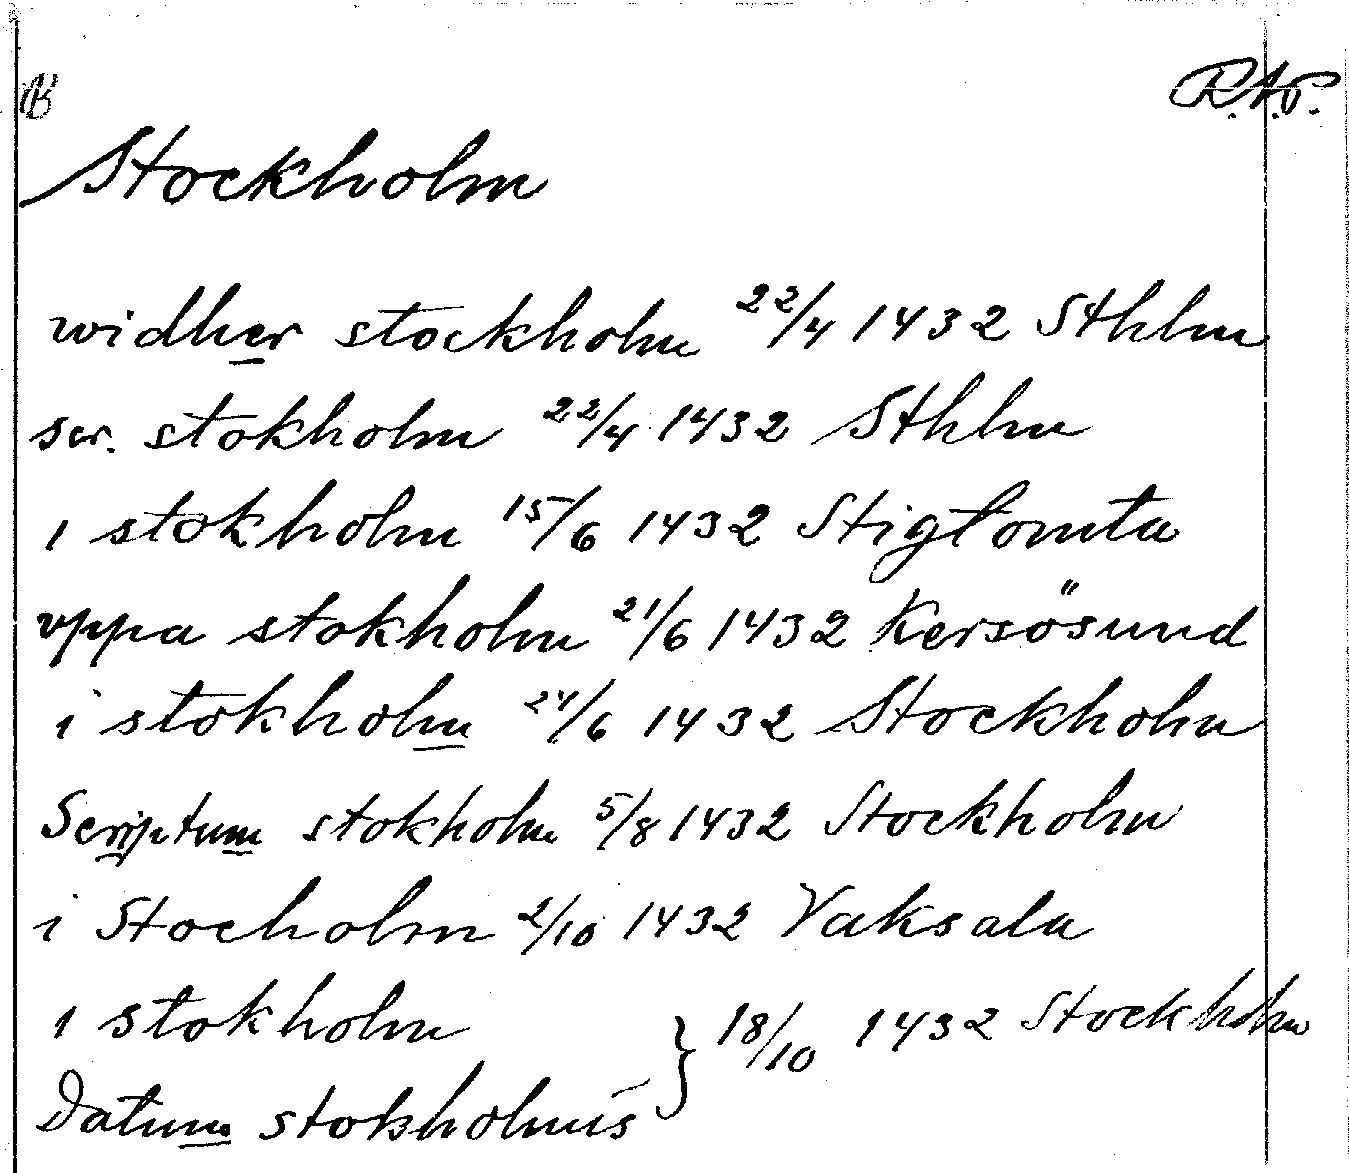 B R.A.P.
Stockholm
widher stockholm 22/4 1432 Sthlm
scr. stokholm 22/4 1432 Sthlm
i stokholm 15/6 1432 Stigtomta
vppa stokholm 21/6 1432 Kersösund
i stokholm 24/6 1432 Stockholm
Scriptum stokholm 5/8 1432 Stockholm
i Stocholm 2/10 1432 Vaksala
i stokholm } 18/10 1432 Stockholm
Datum stokholmis